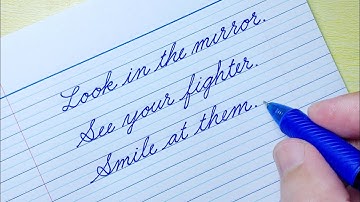 Look in the mirror.
See your fighter.
Smile at them.